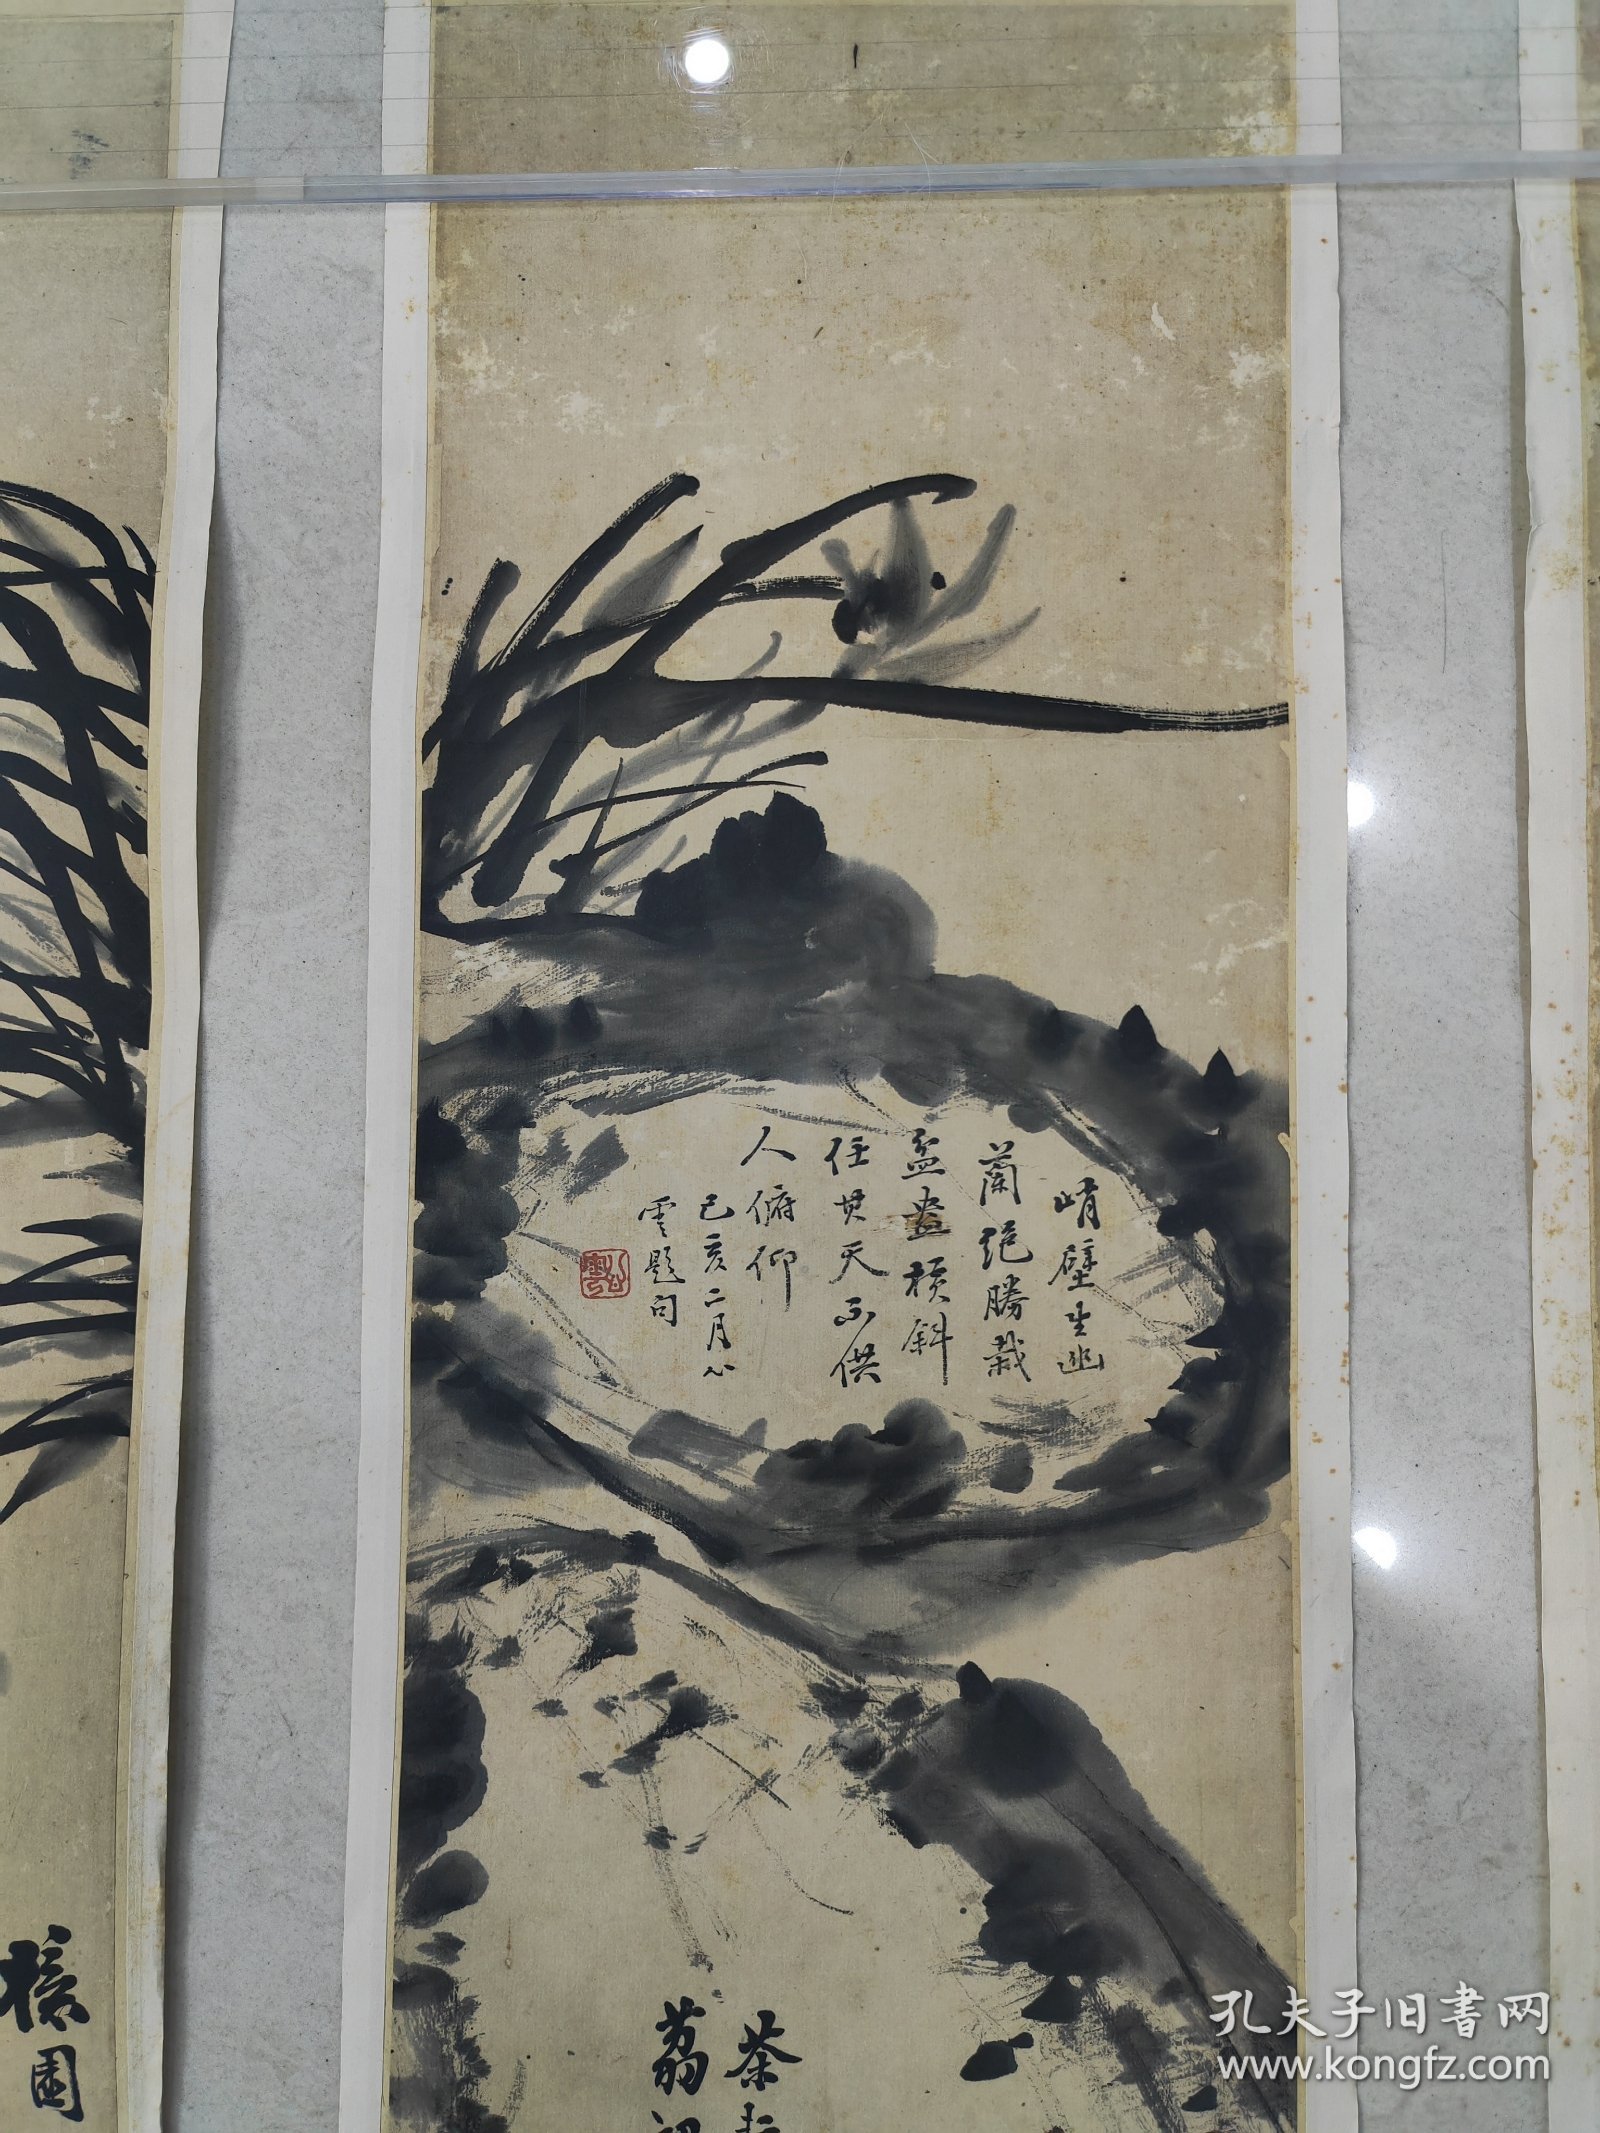 峭壁生幽
蘭絕勝栽
盆盎橫斜
任其天不供
人俯仰
己亥二月心
雲題句
茶
荔
園
孔夫子旧書网
www.kongfz.com